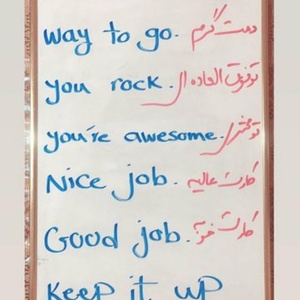 way to go. دمت گرم
you rock. تو فوق العاده ای
you're awesome. تو محشری
Nice job. کارت عالیه
Good job. کارت خوبه
Keep it up